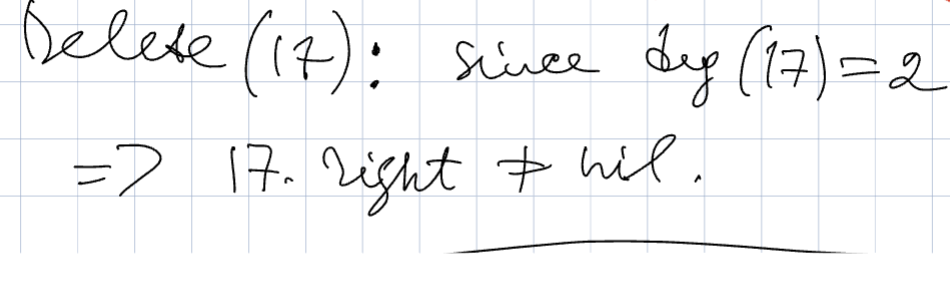 Delete (17): since deg (17) = 2
=> 17. right ≠ nil.